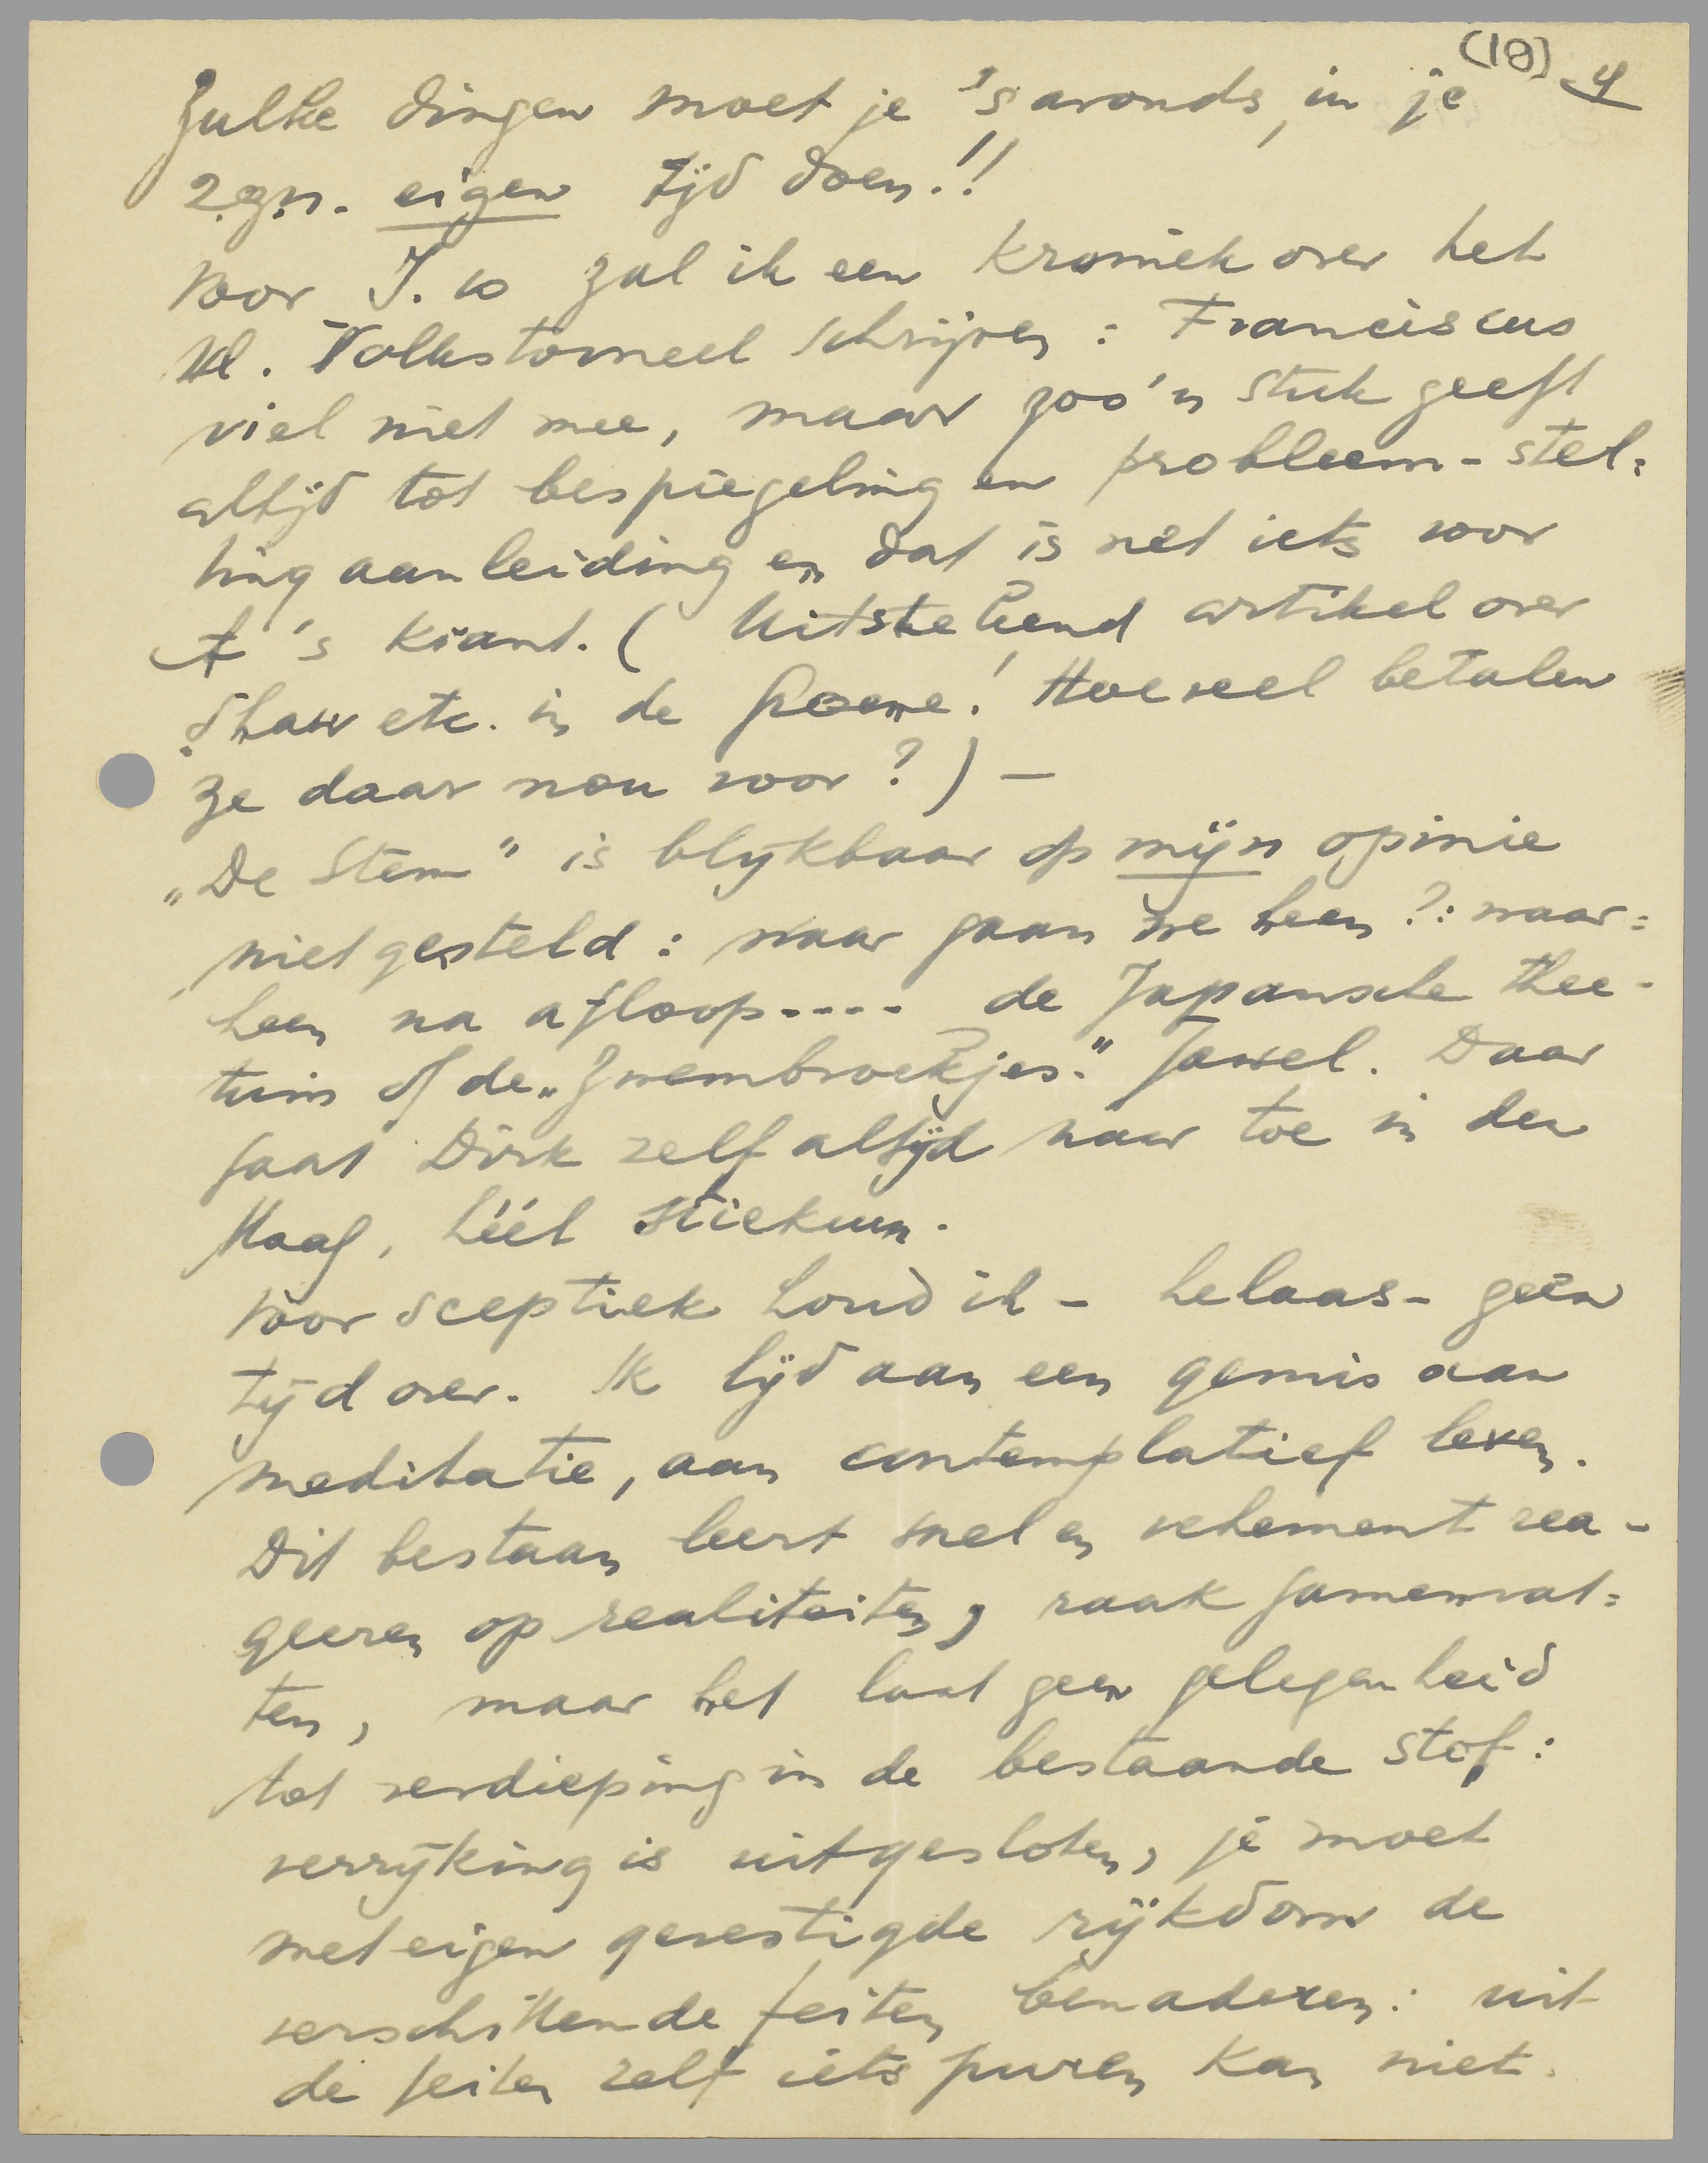 (18) 4
Zulke dingen moet je 's avonds, in je
z.g.n. eigen tijd doen!!
Voor J. 10 zal ik een kroniek over het
Vl. Volkstooneel schrijven: Franciscus
viel niet mee, maar zoo'n stuk geeft
altijd tot bespiegeling en probleem-stel=
ling aanleiding en dat is net iets voor
A's krant. (Uitstekend artikel over
Shaw etc. in de Groene! Hoeveel betalen
ze daar nou voor?) —
„De Stem" is blijkbaar op mijn opinie
niet gesteld: waar gaan we heen?: waar=
heen na afloop.... de Japansche thee-
tuin of de „Zwembroekjes." Jawel. Daar
gaat Dirk zelf altijd naar toe in den
Haag, héél stiekum.
Voor sceptiek houd ik - helaas - geen
tijd over. Ik lijd aan een gemis aan
meditatie, aan contemplatief leven.
Dit bestaan leert snel en vehement rea-
geeren op realiteiten, raak samenvat=
ten, maar het laat geen gelegenheid
tot verdieping in de bestaande stof:
verrijking is uitgesloten, je moet
met eigen gevestigde rijkdom de
verschillende feiten benaderen: uit
de feiten zelf iets puren kan niet.